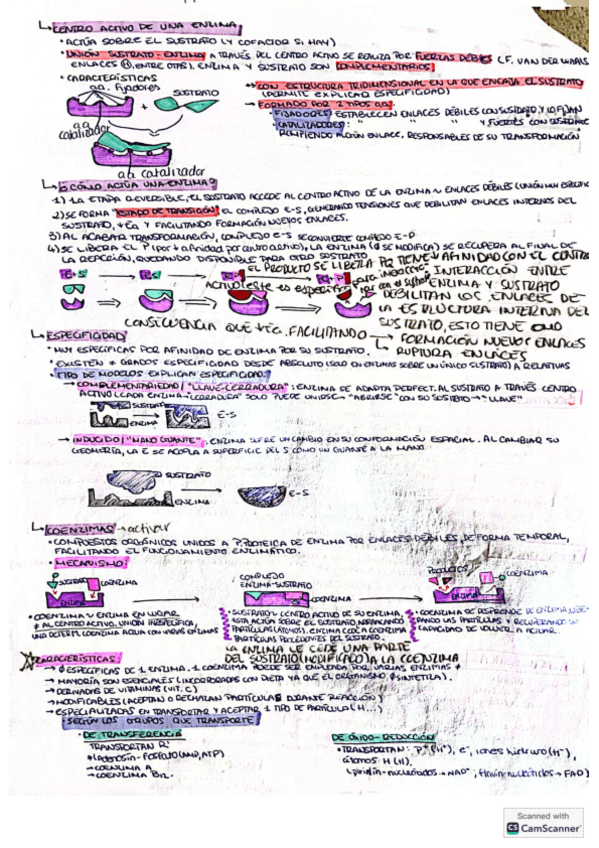 ↳ CENTRO ACTIVO DE UNA ENZIMA
• ACTÚA SOBRE EL SUSTRATO (Y COFACTOR SI HAY)
• UNIÓN SUSTRATO-ENZIMA A TRAVÉS DEL CENTRO ACTIVO SE REALIZA POR FUERZAS DÉBILES (F. VAN DER WAALS
ENLACES H, ENTRE OTRS). ENZIMA Y SUSTRATO SON COMPLEMENTARIOS
• CARACTERÍSTICAS
→ CON ESTRUCTURA TRIDIMENSIONAL EN LA QUE ENCAJA EL SUSTRATO
(PERMITE EXPLICAR ESPECIFICIDAD)
→ FORMADO POR 2 TIPOS aa
• FIJADORES: ESTABLECEN ENLACES DÉBILES CON SUSTRATO, Y LO FIJAN
• CATALIZADORES: " " Y FUERTES CON SUSTRATO
ROMPIENDO ALGÚN ENLACE, RESPONSABLES DE SU TRANSFORMACIÓN
aa. Fijadores
SUSTRATO
aa catalizador
aa catalizador
↳ ¿CÓMO ACTÚA UNA ENZIMA?
1) LA ETAPA REVERSIBLE, EL SUSTRATO ACCEDE AL CENTRO ACTIVO DE LA ENZIMA ~ ENLACES DÉBILES (UNIÓN MUY ESPECÍFIC
2) SE FORMA "ESTADO DE TRANSICIÓN", EL COMPLEJO E-S, GENERANDO TENSIONES QUE DEBILITAN ENLACES INTERNOS DEL
SUSTRATO, ↓Ea Y FACILITANDO FORMACIÓN NUEVOS ENLACES.
3) AL ACABAR TRANSFORMACIÓN, COMPLEJO E-S SE CONVIERTE COMPLEJO E-P
4) SE LIBERA EL P (por ↓ afinidad por centro activo), LA ENZIMA (Ø SE MODIFICA) SE RECUPERA AL FINAL DE
LA REACCIÓN, QUEDANDO DISPONIBLE PARA OTRO SUSTRATO
EL PRODUCTO SE LIBERA PQ TIENE ↓ AFINIDAD CON EL CENTRO
INTERACCIÓN ENTRE
ENZIMA Y SUSTRATO
DEBILITAN LOS ENLACES DE
LA ESTRUCTURA INTERNA DEL
SUSTRATO, ESTO TIENE COMO
CONSECUENCIA QUE ↓Ea. FACILITANDO → FORMACIÓN NUEVOS ENLACES
RUPTURA ENLACES
E+S
E-S
E+P
↳ ESPECIFICIDAD
• MUY ESPECÍFICAS POR AFINIDAD DE ENZIMA POR SU SUSTRATO.
• EXISTEN ≠ GRADOS ESPECIFICIDAD DESDE ABSOLUTO (SOLO EN ENZIMAS SOBRE UN ÚNICO SUSTRATO) A RELATIVAS
• TIPO DE MODELOS EXPLICAN ESPECIFICIDAD:
→ COMPLEMENTARIEDAD / "LLAVE-CERRADURA": ENZIMA SE ADAPTA PERFECT. AL SUSTRATO A TRAVÉS CENTRO
ACTIVO (CADA ENZIMA - "CERRADURA" SOLO PUEDE UNIRSE → "ABRIRSE" CON SU SUSTRATO → "LLAVE"
SUSTRATO
ENZIMA
E-S
→ INDUCIDO / "MANO GUANTE": ENZIMA SUFRE UN CAMBIO EN SU CONFORMACIÓN ESPACIAL. AL CAMBIAR SU
GEOMETRÍA, LA E SE ACOPLA A SUPERFICIE DEL S COMO UN GUANTE A LA MANO.
SUSTRATO
ENZIMA
E-S
↳ COENZIMAS → activar
• COMPUESTOS ORGÁNICOS UNIDOS A P. PROTEICA DE ENZIMA POR ENLACES DÉBILES, DE FORMA TEMPORAL,
FACILITANDO EL FUNCIONAMIENTO ENZIMÁTICO.
• MECANISMO:
SUSTRATO COENZIMA
ENZIMA
COMPLEJO
ENZIMA-SUSTRATO
COENZIMA
PRODUCTOS
COENZIMA
ENZIMA
• COENZIMA ~ ENZIMA EN LUGAR
≠ AL CENTRO ACTIVO. UNIÓN INESPECÍFICA,
UNA DETERM. COENZIMA ACTÚA CON VARIAS ENZIMAS
• SUSTRATO ~ CENTRO ACTIVO DE SU ENZIMA,
ESTA ACTÚA SOBRE EL SUSTRATO, ARRANCANDO
PARTÍCULAS (ÁTOMOS). ENZIMA CEDE A COENZIMA
PARTÍCULAS PROCEDENTES DEL SUSTRATO.
• COENZIMA SE DESPRENDE DE ENZIMA
PARTÍCULAS Y RECUPERANDO SU
CAPACIDAD DE VOLVER A ACTUAR.
LA ENZIMA LE CEDE UNA PARTE
DEL SUSTRATO (MODIFICADO) A LA COENZIMA
CARACTERÍSTICAS:
→ Ø ESPECÍFICAS DE 1 ENZIMA. 1 COENZIMA PUEDE SER EMPLEADA POR VARIAS ENZIMAS ≠
→ MAYORÍA SON ESENCIALES (INCORPORADAS CON DIETA YA QUE EL ORGANISMO Ø SINTETIZA).
→ DERIVADAS DE VITAMINAS (VIT. C)
→ MODIFICABLES (ACEPTAN O RECHAZAN PARTÍCULAS DURANTE REACCIÓN)
→ ESPECIALIZADAS EN TRANSPORTAR Y ACEPTAR 1 TIPO DE PARTÍCULA (H...)
• SEGÚN LOS GRUPOS QUE TRANSPORTE
• DE TRANSFERENCIA
TRANSPORTAN R'
(adenosín-fosfato (AMP, ATP)
→ COENZIMA A
→ COENZIMA B12.
DE ÓXIDO-REDUCCIÓN
• TRANSPORTAN: P⁺ (H⁺), e⁻, iones hidruro (H⁻),
átomos H (H).
(piridín-nucleótidos → NAD⁺, flavín nucleótidos → FAD)
Scanned with
CS CamScanner